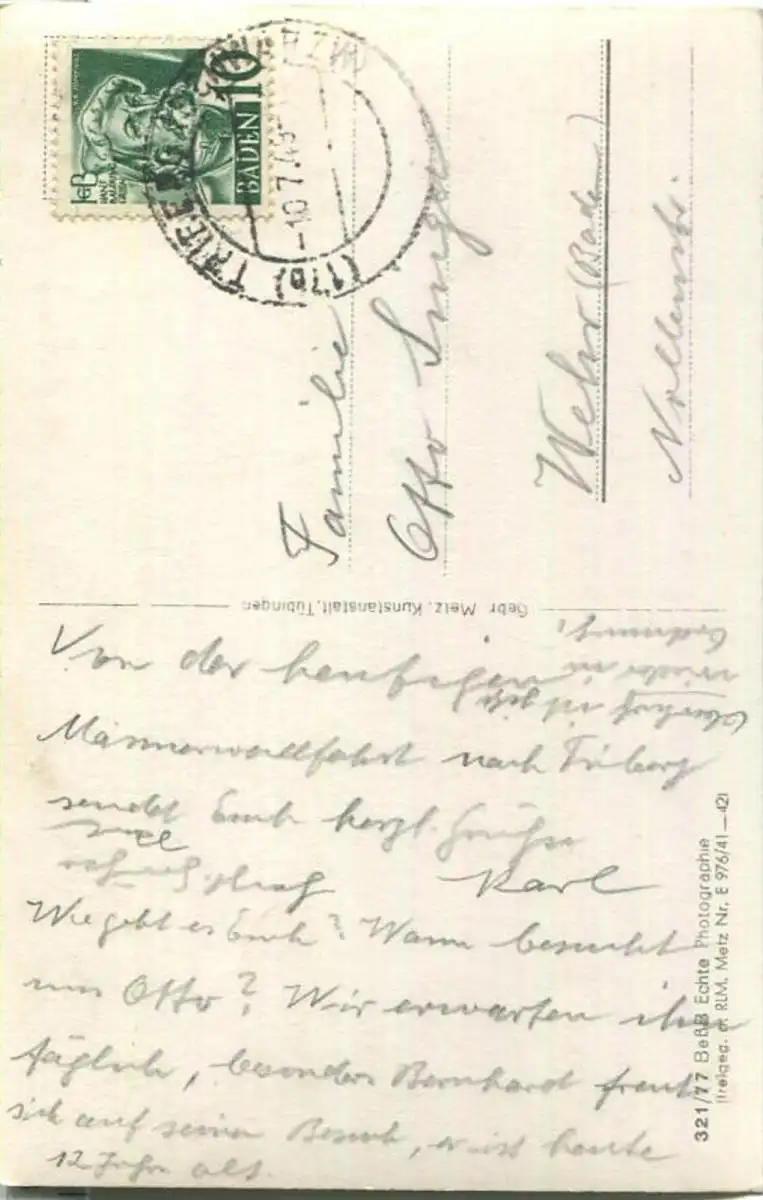 10
BADEN
HANS
BALDUNG
GRIEN
(17b) TRIBERG (SCHWARZW)
-10.7.4
Familie
Otto
Wehr (Baden)
Gebr. Metz, Kunstanstalt, Tübingen
Von der heutigen
Männerwallfahrt nach Triberg
sendet Euch herzl. Grüße
Karl
herzl. Grüße
Wie geht es Euch? Wann besucht
uns Otto? Wir erwarten ihn
täglich, besonders Bernhard freut
sich auf seinen Besuch, er ist heute
12 Jahre alt.
wieder in
Ordnung.
321/77 BeBB Echte Photographie
freigeg. d. RLM. Metz Nr. E 976/41—421